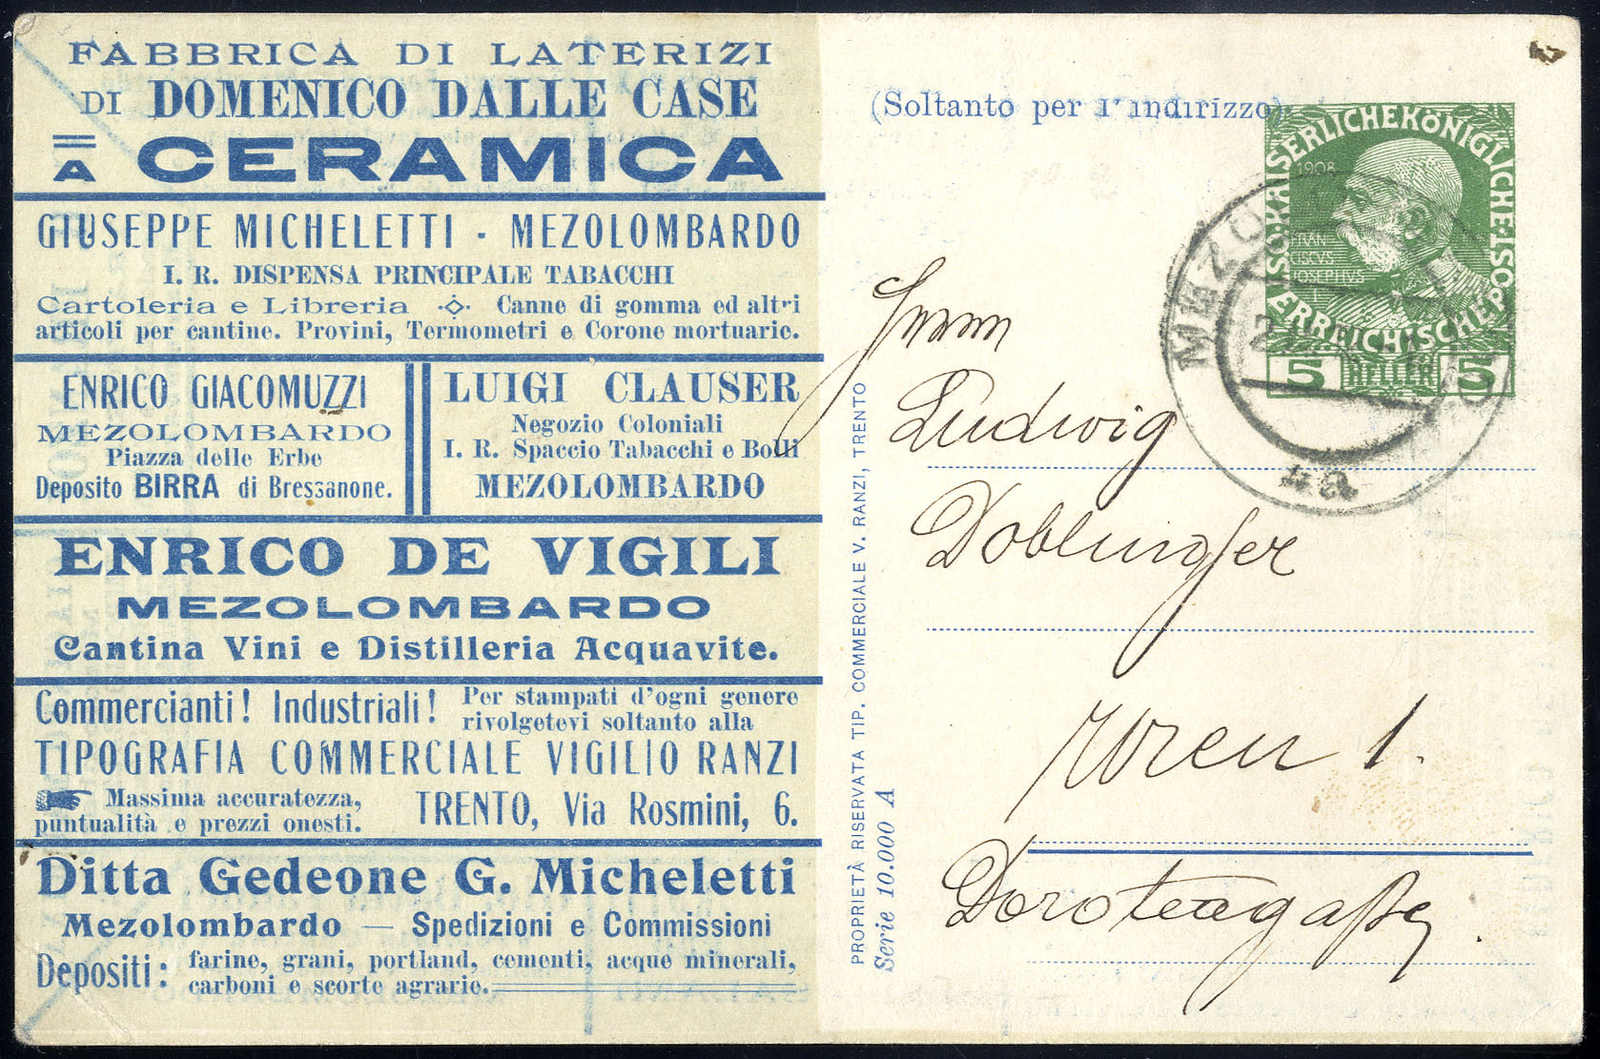 FABBRICA DI LATERIZI
DI DOMENICO DALLE CASE
A CERAMICA
GIUSEPPE MICHELETTI - MEZOLOMBARDO
I. R. DISPENSA PRINCIPALE TABACCHI
Cartoleria e Libreria Canne di gomma ed altri
articoli per cantine. Provini, Termometri e Corone mortuarie.
ENRICO GIACOMUZZI
MEZOLOMBARDO
Piazza delle Erbe
Deposito BIRRA di Bressanone.
LUIGI CLAUSER
Negozio Coloniali
I. R. Spaccio Tabacchi e Bolli
MEZOLOMBARDO
ENRICO DE VIGILI
MEZOLOMBARDO
Cantina Vini e Distilleria Acquavite.
Commercianti! Industriali! Per stampati d'ogni genere
rivolgetevi soltanto alla
TIPOGRAFIA COMMERCIALE VIGILIO RANZI
Massima accuratezza,
puntualità e prezzi onesti.
TRENTO, Via Rosmini, 6.
Ditta Gedeone G. Micheletti
Mezolombardo — Spedizioni e Commissioni
Depositi: farine, grani, portland, cementi, acque minerali,
carboni e scorte agrarie.
PROPRIETÀ RISERVATA TIP. COMMERCIALE V. RANZI, TRENTO
Serie 10.000 A
(Soltanto per l'indirizzo)
KAISERLICHE KÖNIGLICHE
ÖSTERREICHISCHE POST
1908
FRAN
CISCVS
IOSEPHVS
5 HELLER 5
MEZO
4a
Herrn
Ludwig
Doblinger
Wien 1.
Doroteagasse.